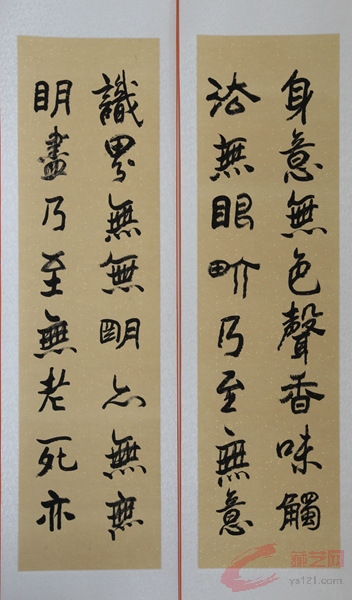 身意無色聲香味觸
法無眼畍乃至無意
識界無無明亦無無
明盡乃至無老死亦
ys121.com